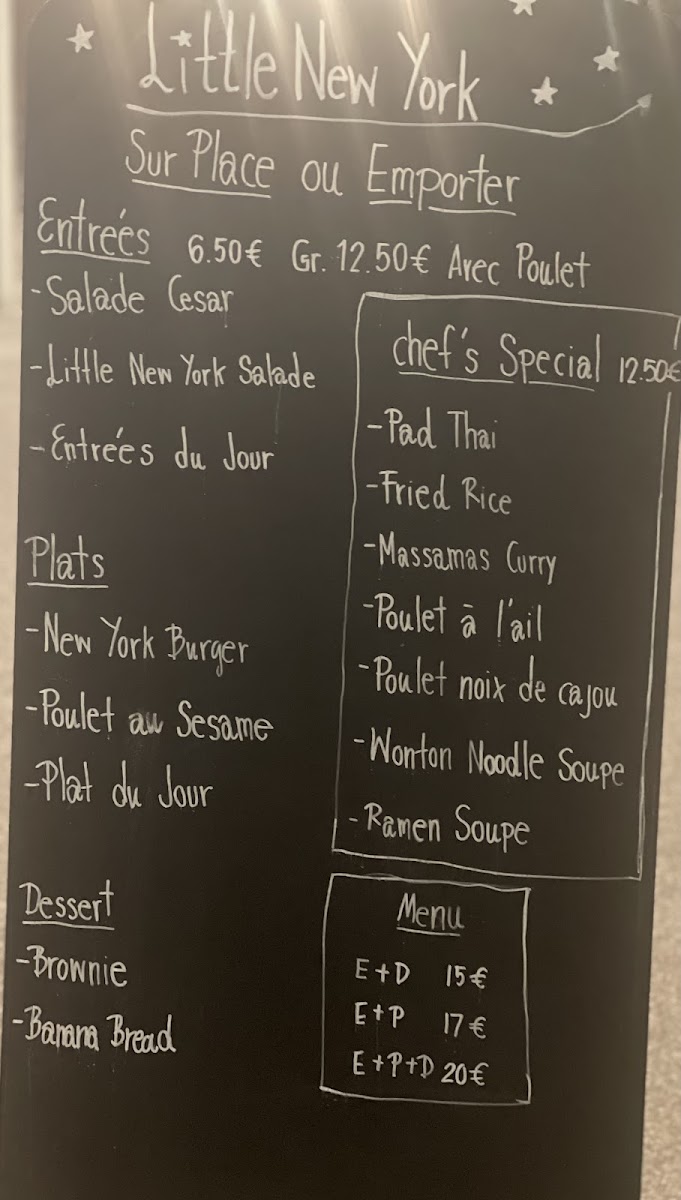 Little New York
Sur Place ou Emporter
Entreés 6.50€ Gr. 12.50€ Avec Poulet
-Salade Cesar
-Little New York Salade
-Entrées du Jour
Plats
-New York Burger
-Poulet au Sesame
-Plat du Jour
Dessert
-Brownie
-Banana Bread
chef's Special 12.50€
-Pad Thai
-Fried Rice
-Massamas Curry
-Poulet à l'ail
-Poulet noix de cajou
-Wonton Noodle Soupe
-Ramen Soupe
Menu
E+D 15€
E+P 17€
E+P+D 20€